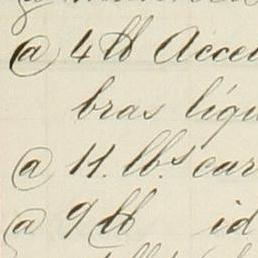 @ 4 lb Accei
bras líqu
@ 11. lbs. car
@ 9 lb id